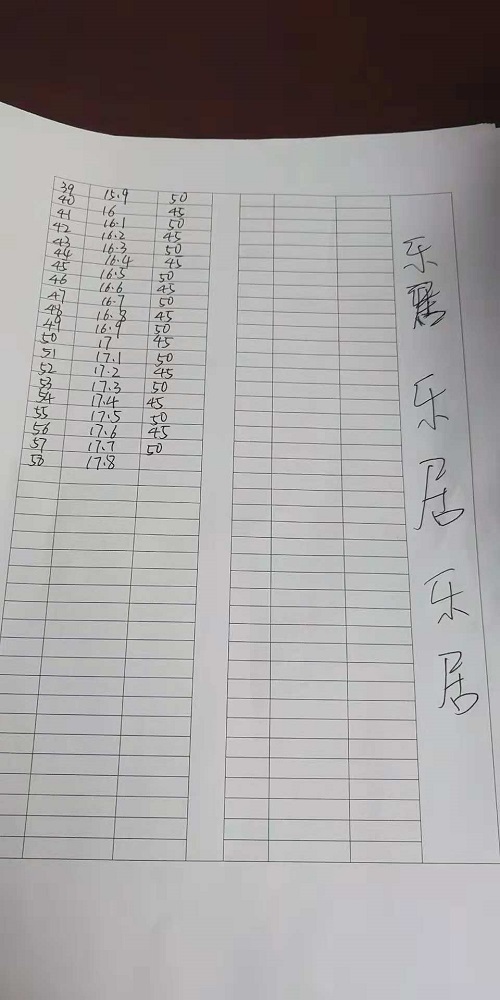 39 15.9 50
40 16 45
41 16.1 50
42 16.2 45
43 16.3 50
44 16.4 45
45 16.5 50
46 16.6 45
47 16.7 50
48 16.8 45
49 16.9 50
50 17 45
51 17.1 50
52 17.2 45
53 17.3 50
54 17.4 45
55 17.5 50
56 17.6 45
57 17.7 50
58 17.8
乐居
乐居
乐居